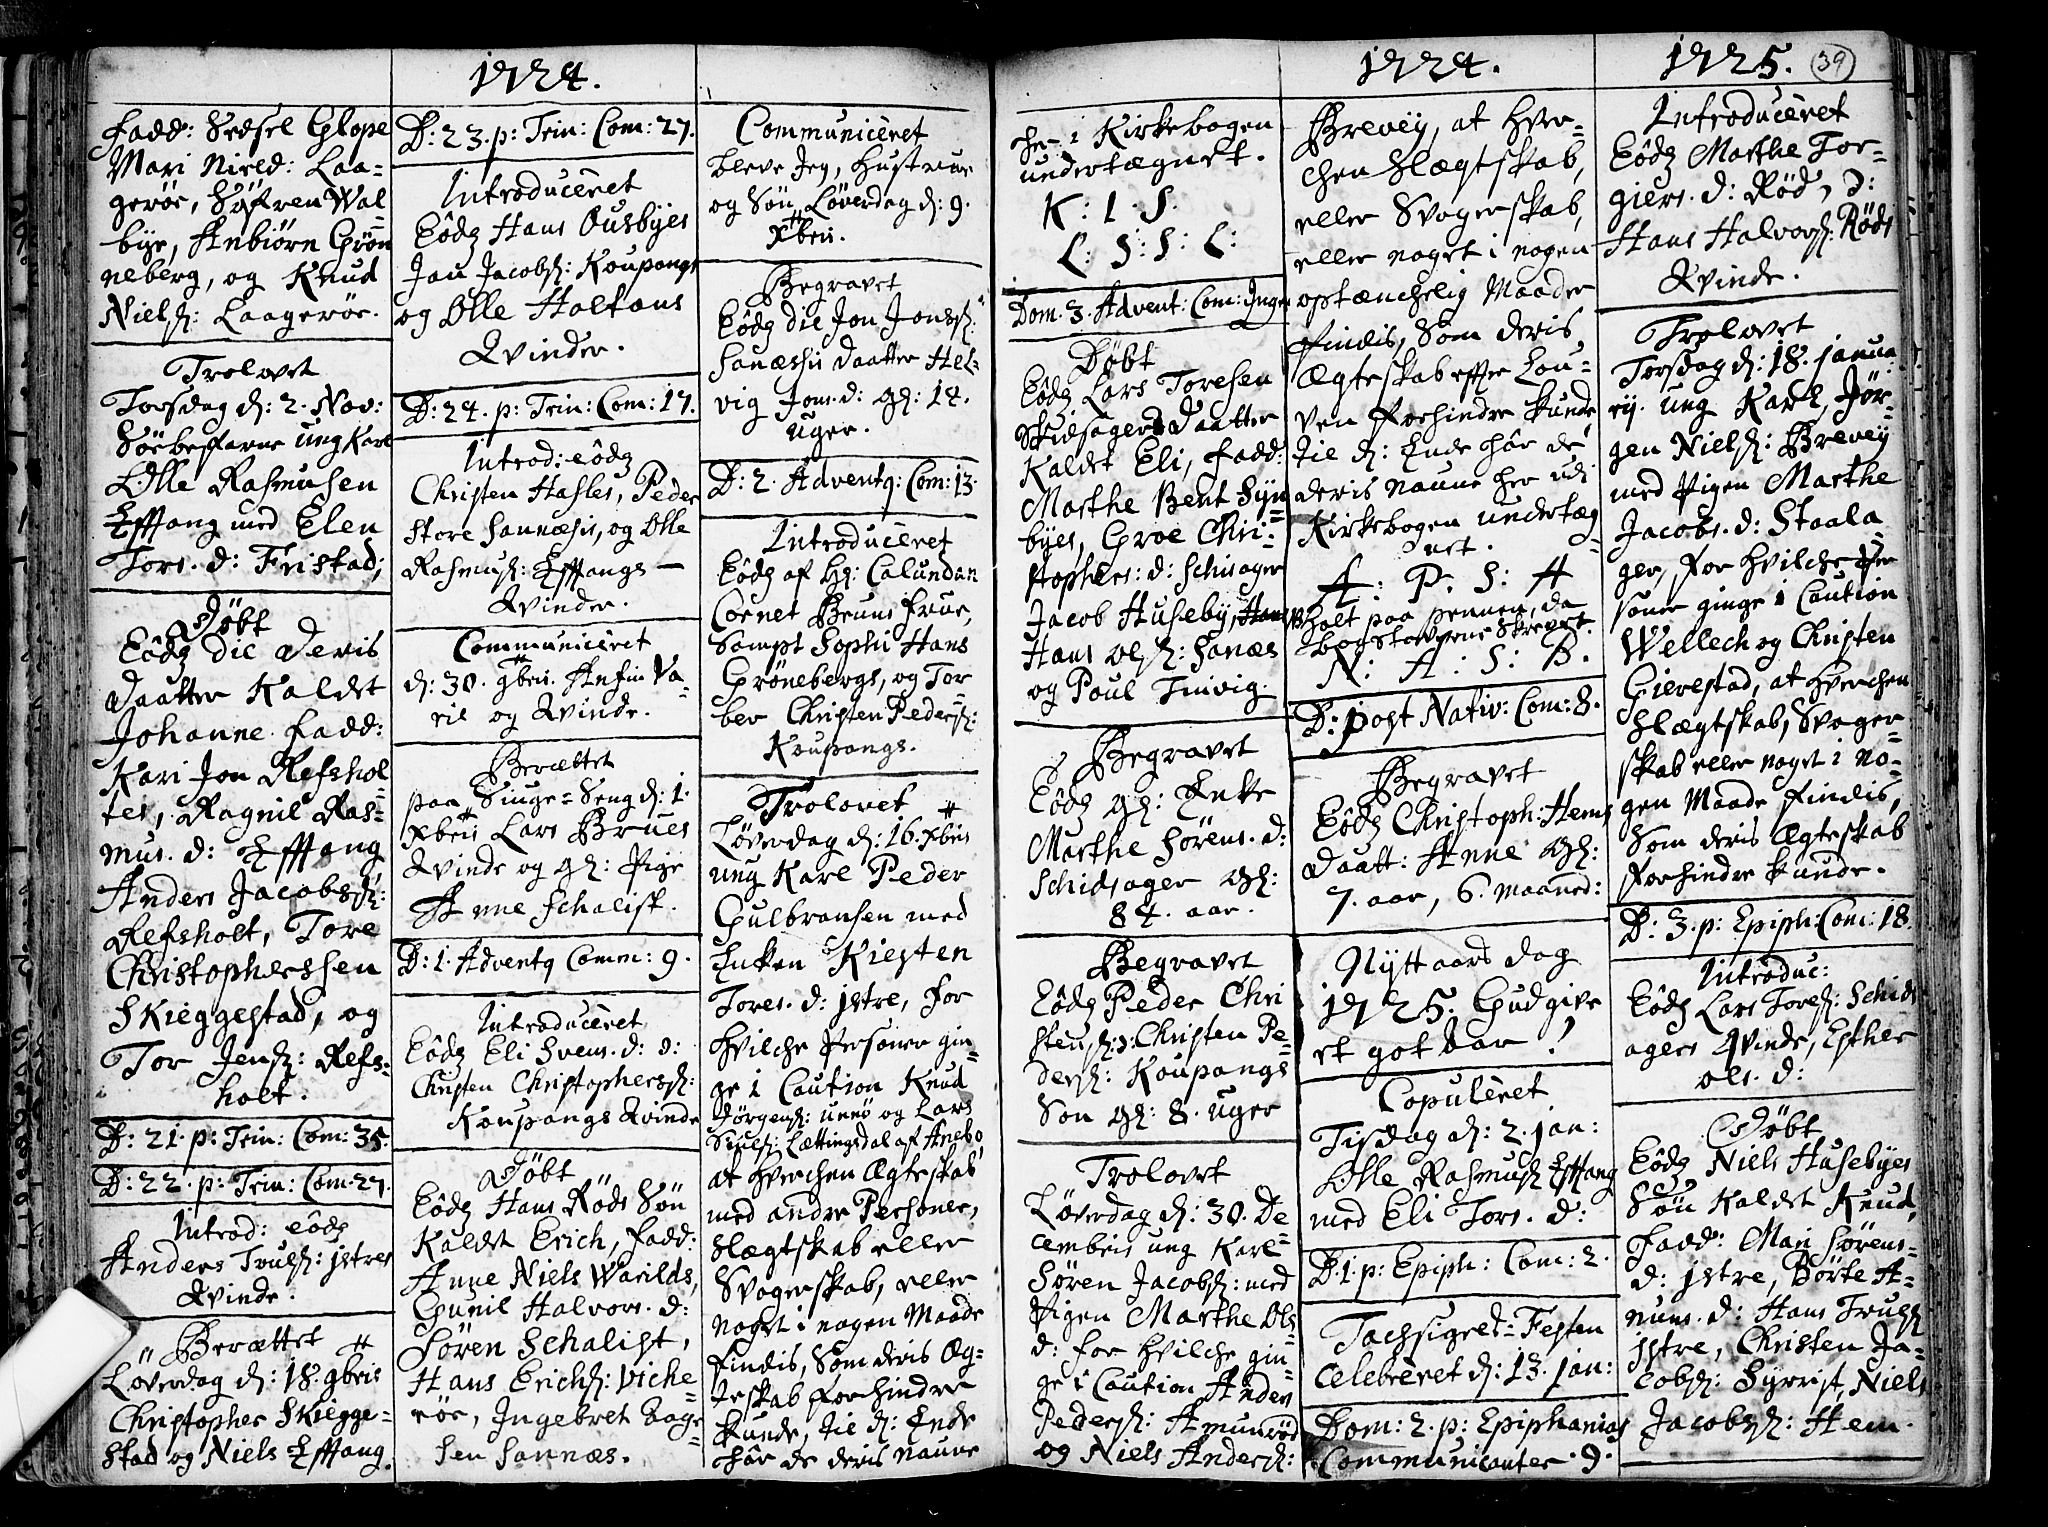 1724.
Fadd: Sedsel Glope
Mari Nield: Laa-
geröe, Söfren Wal
bye, Anbiörn Grön
neberg, og Knud
Niels: Laageröe.
Trolovet
Torsdag d: 2. Nov:
ung Karl
Olle Rasmusen
Efftang med Elen
Tors. d: Fristad;
Döbt
Eôdz die deris
daatter Kaldet
Johanne. Fadd:
Kari Jon Refshol
tes, Ragnil Ras-
mus. d: Efftang
Anders Jacobs:
Refsholt, Tore
Christopherssen
Skieggestad, og
Tor Jens: Refs-
holt.
D: 21. p: Trin: Com: 35.
D: 22. p: Trin: Com: 27.
Introd: eôdz
Anders Truls: jstres
Qvinde.
Berættet
Löverdag d: 18. 9bris
Christopher Skiegge-
stad og Niels Efftang.
D: 23. p: Trin: Com: 27.
Introducêret
Eôdz Hans Ousbyes
Jan Jacobs: Koupangs
og Olle Holtans
Qvinder.
D: 24. p: Trin: Com: 17.
Introd: eôdz
Christen Hasles, Peder
store Sannæsis, og Olle
Rasmus: Efftangs
Qvinder.
Communicêret
d: 30. 9bris. Anfin Va-
ril og Qvinde.
Berættet
paa Siuge-Seng d: 1.
Xbris Lars Brues
Qvinde og gl: Pige
Anne Schalist.
D: 1. Advent9 Comm: 9.
Introducêret
Eôdz Eli Svens. d: d:
Christen Christophers:
Koupangs Qvinde
Döbt
Eôdz Hans Röds Sön
Kaldet Erich, Fadd:
Anne Niels Warilds,
Gunil Halvors. d:
Sören Schalist,
Hans Erichs: Viche-
röe, Ingebret Aage-
sen Sannæs.
Communicêret
bleve Jeg, Hustrue
og Sön Löverdag d: 9.
Xbris.
Begravet
Eôdz die Jon Jons:
Sanæssis daatter Hel-
vig Jons. d: gl: 14.
uger.
D: 2. Advent9: Com: 13.
Introducêret
Eôdz af Hr: Calundan
Cornet Bruns Frue,
Sampt Sophi Hans
Grönebergs, og Tor
ber Christen Peders:
Koupangs.
Trolovet
Löverdag d: 16. Xbris
ung Karl Peder
Gulbransen med
Enken Kiersten
Tores. d: jstre, for
hvilche Personer gin-
ge i Caution Knud
Jörgens: unnö og Lars
Siuls: Lættingsdal af Anebo
at hverchen Ægteskab
med andre Personer,
Slægtskab eller
Svogerskab, eller
noget i nogen Maade
findis, som deris Æg-
teskab forhindre
kunde, til d: Ende
hâr de deris naune
1724.
her i Kirkebogen
undertægnet.
K: I. S.
L: S: S: L:
Dom. 3. Advent: Com: Ingen
Döbt
Eôdz Lars Toresen
Skidsagers daatter
Kaldet Eli, Fadd:
Marthe Bent Syn
byes, Groe Chri-
stophers: d: Schisager
Jacob Huseby,
Hans Ols: Sanæs
og Poul Tinvig.
Begravet
Eôdz gl: Enke
Marthe Sörens. d:
Schidsager gl:
84. aar.
Begravet
Eôdz Peder Chri
stens: d: Christen Pe-
ders: Koupangs
Sön gl: 8. uger
Trolovet
Löverdag d: 30. De
cembris ung Karl
Sören Jacobs: med
Pigen Marthe Ols
d: for hvilche gin-
ge i Caution Anders
Peders: Amunröd
og Niels Anders:
Brevig, at hver-
chen Slægtskab,
eller Svogerskab,
eller noget i nogen
optænchelig Maader
findis, som deris
Ægteskab effter Lou-
ven forhindre kunde
til d: Ende hâr de
deris naune her udi
Kirkebogen undertæg
net.
A: P: S: H
holt paa pennen, da
bogstaverne Skrevet.
N: A: S: B.
D: post Nativ: Com: 8.
Begravet
Eôdz Christoph: Hems
daatt: Anne gl:
7. aar, 6. maaned:
Nytt aars dag
1725. Gud give
et got aar!
Copulêret
Tisdag d: 2. jan:
Olle Rasmus: Efftang
med Eli Tors. d:
D. 1. p: Epiph: Com: 2.
Tachsigels-Festen
Celebrêret d: 13. jan:
Dom: 2. p: Epiphanias
Communicanter 9.
1725. 39
Introducêret
Eôdz Marthe Tor-
giers. d: Röd, d:
Hans Halvors: Röds
Qvinde.
Trolovet
Torsdag d: 18. janua
rij. ung Karl, Jör-
gen Niels: Brevig
med Pigen Marthe
Jacobs. d: Staala
ger, for hvilche Per
soner ginge i Caution
Wellech og Christen
Gierestad, at hverchen
Slægtskab, Svoger
skab eller noget i no-
gen Maade findis,
som deris Ægteskab
forhindre kunde.
D: 3. p: Epiph: Com: 18.
Introduc:
Eôdz Lars Tores: Schids
agers Qvinde, Esther
Ols. d:
Döbt
Eôdz Niels Husebyes
Sön Kaldet Knud,
Fadd: Mari Sörens-
d: jstre, Börte A-
nuns. d: Hans Truls:
jstre, Christen Ja-
cobs: Syrrist, Niels
Jacobs: Hem.